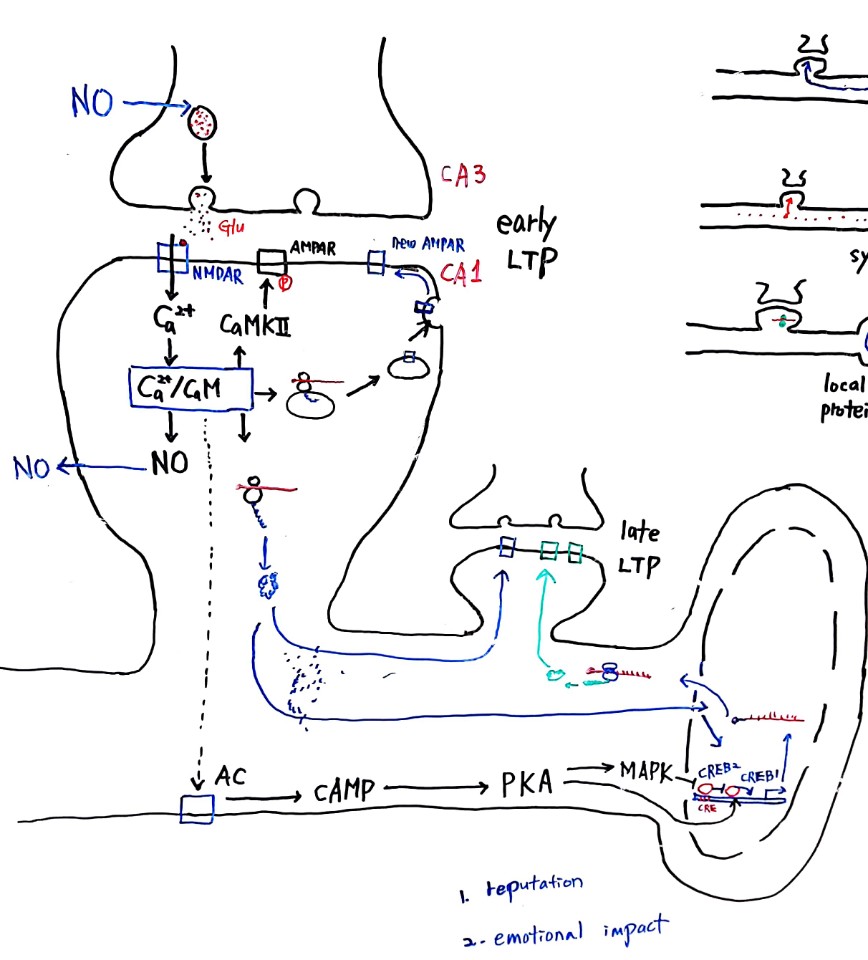 NO
CA3
Glu
early
LTP
AMPAR
new AMPAR
NMDAR
P
CA1
Ca2+
CaMKII
Ca2+/CaM
NO
NO
sy
local
protei
late
LTP
AC
CAMP
PKA
MAPK
CREB2
CREB1
CRE
1. reputation
2. emotional impact